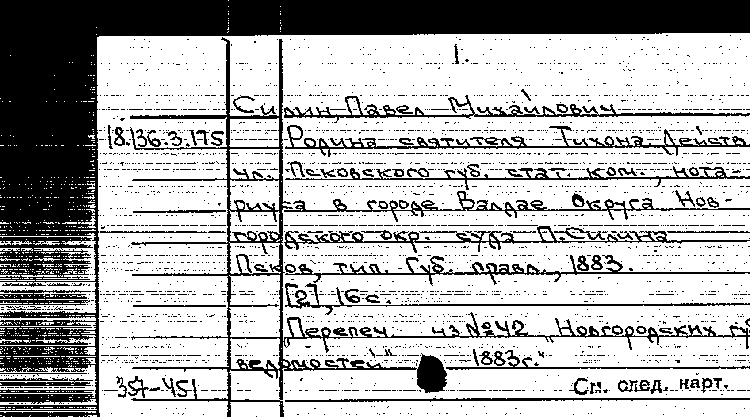 1.
Силин, Павел Михайлович
18.136.3.175 Родина святителя Тихона. Действ
чл. Псковского губ. стат. ком., нота-
риуса в городе Валдае Округа Нов-
городского окр. суда П.Силина
Псков, тип. Губ. правл., 1883.
[2], 16 с.
"Перепеч. из №42 "Новгородских гу
ведомостей" 1883г."
357-451 См. след. карт.